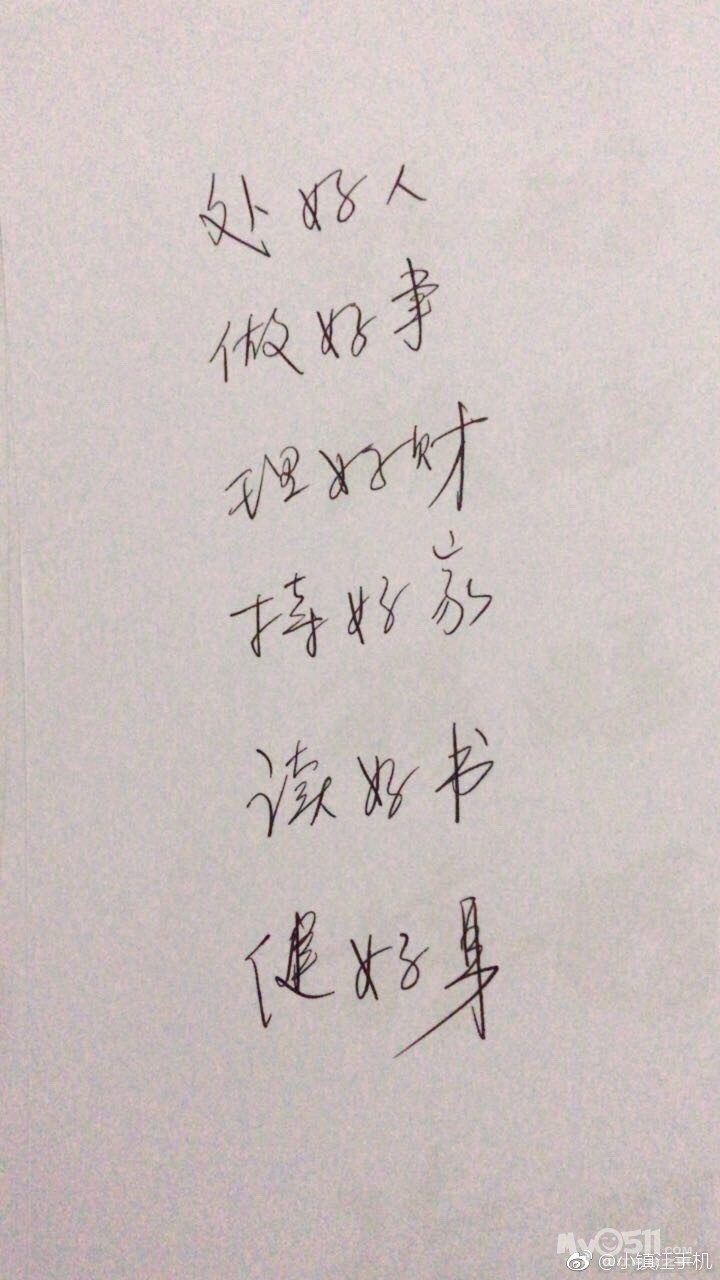 处好人
做好事
理好财
持好家
读好书
健好身
My0511.COM
@小镇汪手机